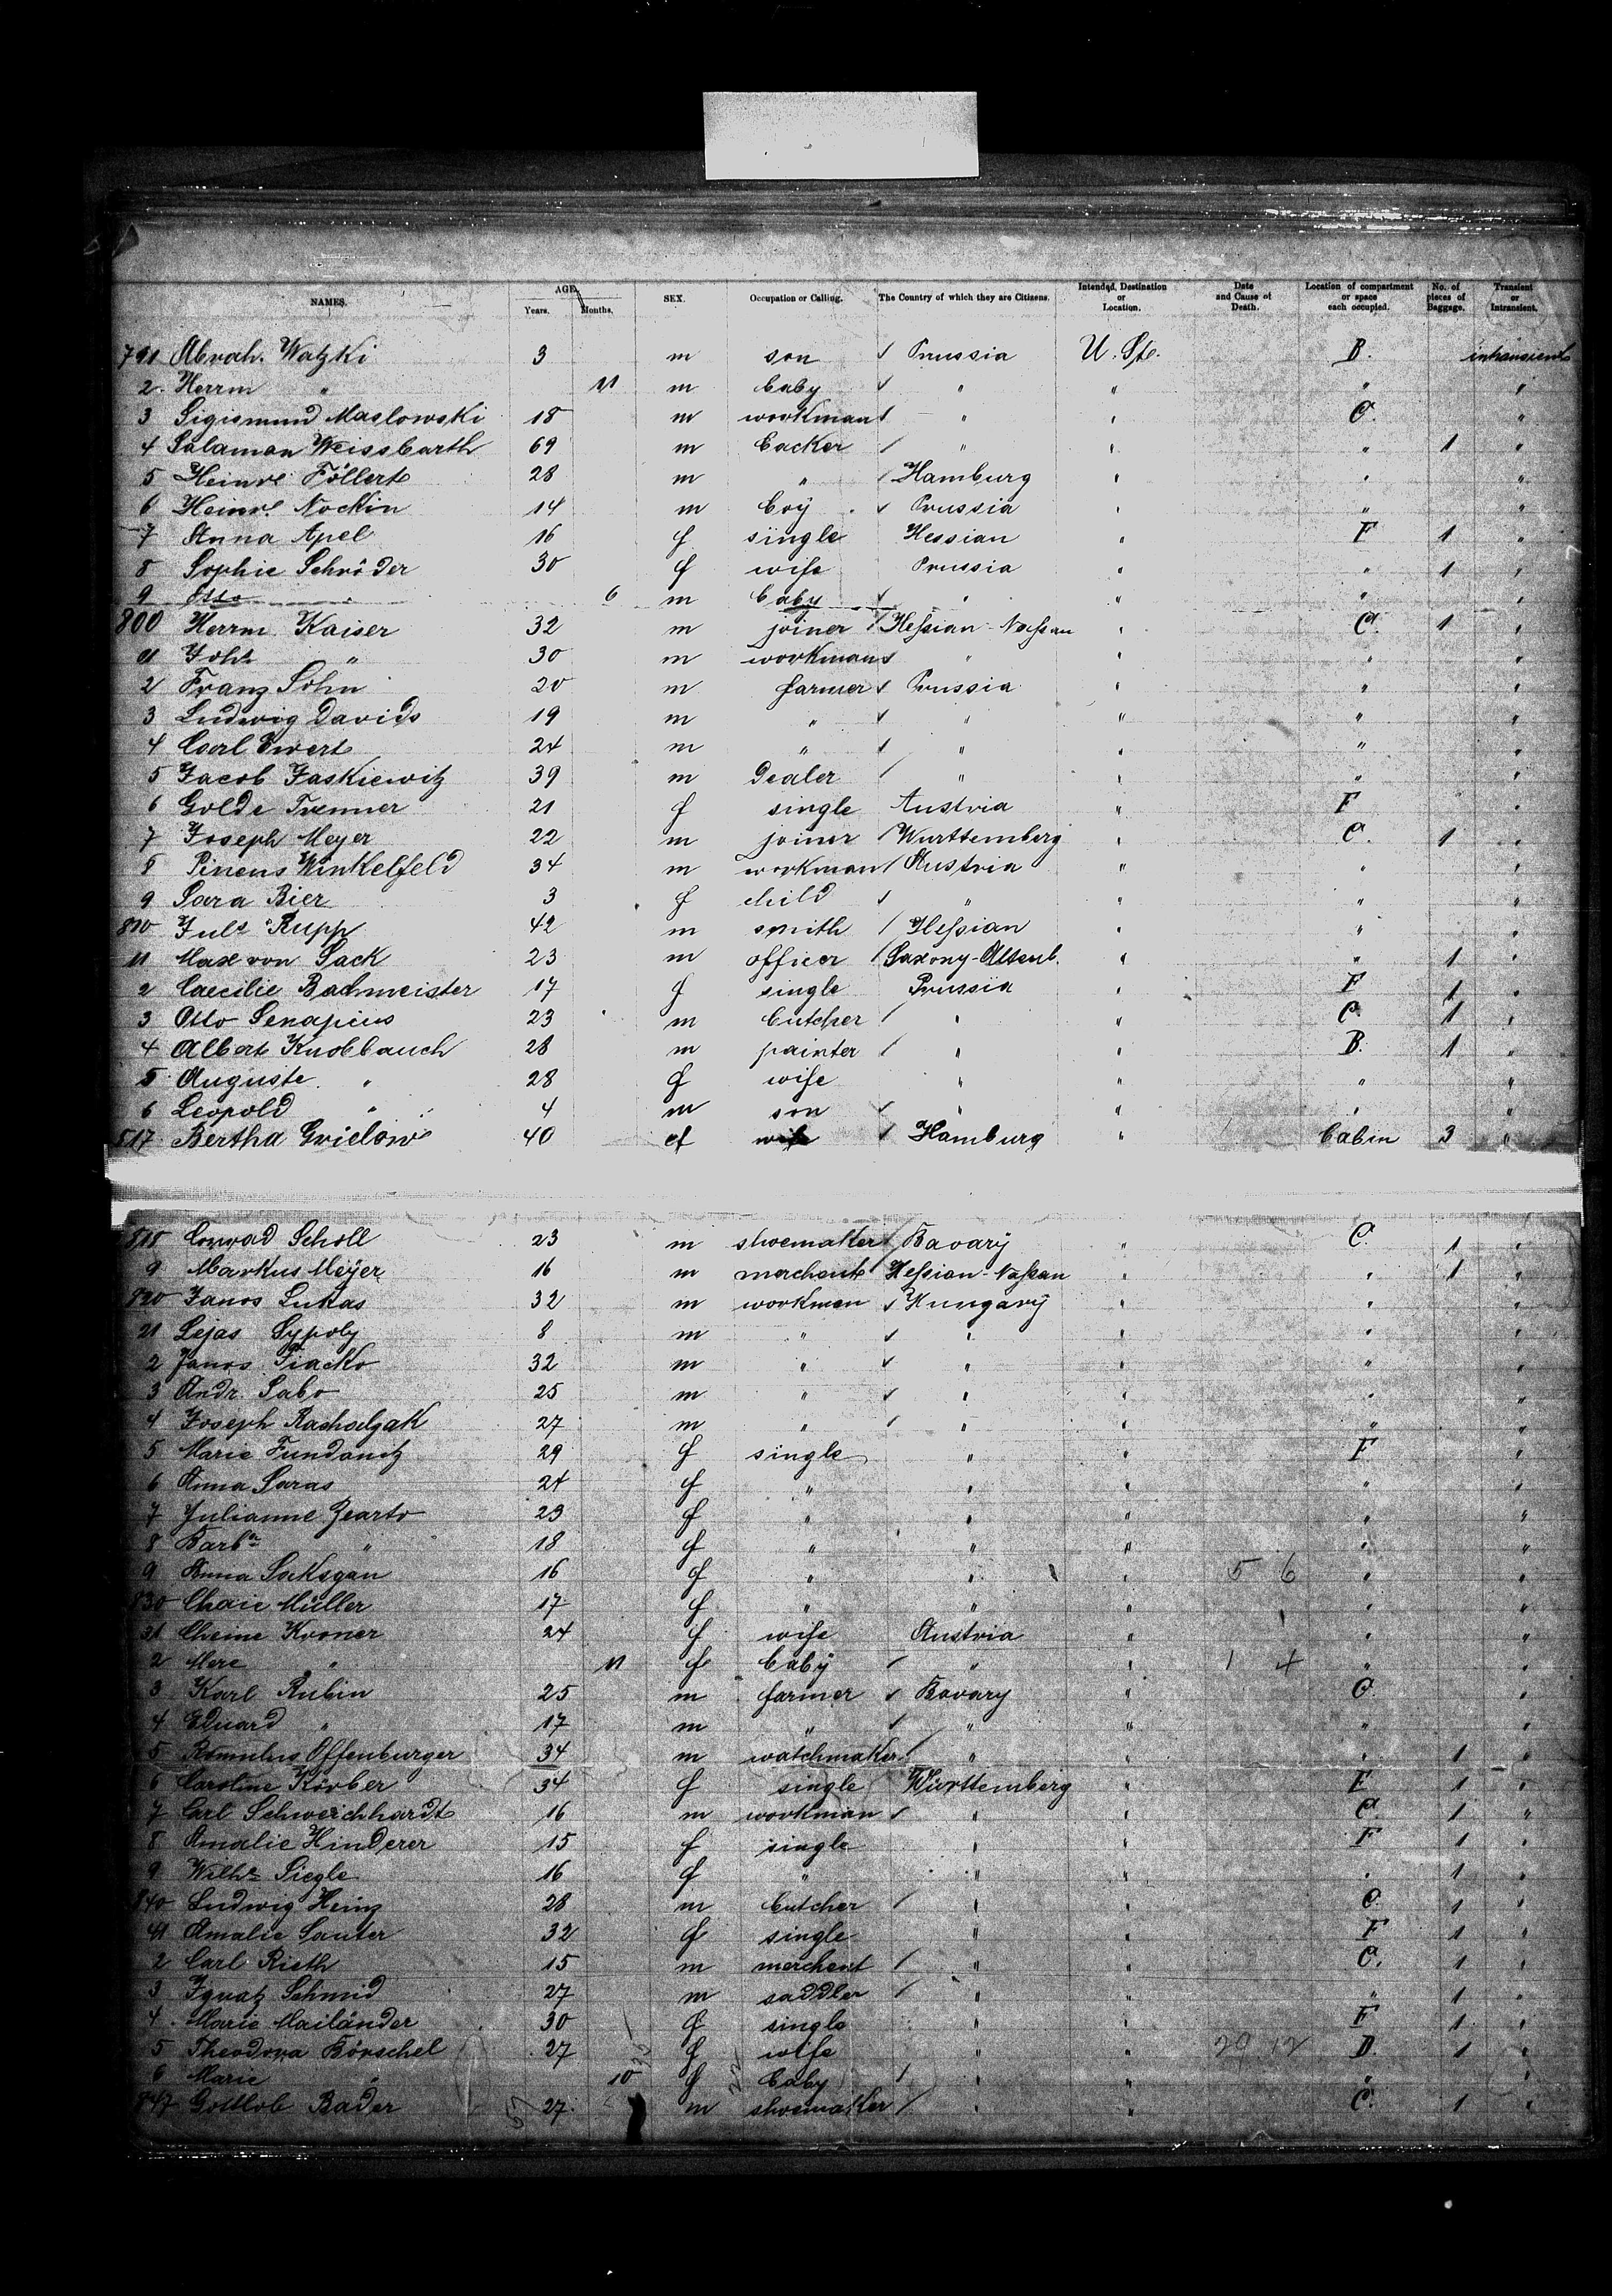 NAMES. AGE. Years. Months. SEX. Occupation or Calling. The Country of which they are Citizens. Intended Destination or Location. Date and Cause of Death. Location of compartment or space each occupied. No. of pieces of Baggage. Transient or Intransient.
791 Abrah. Watzki 3 m son Prussia U. St. B. intransient
2 Herrm " 11 m baby " " " "
3 Sigismund Maslowski 18 m workman " " C. "
4 Salamon Weissbarth 69 m backer " " " 1 "
5 Heinr. Föllert 28 m " Hamburg " " "
6 Heinr. Nockin 14 m boy Prussia " " "
7 Anna Apel 16 f single Hessian " F 1 "
8 Sophie Schröder 30 f wife Prussia " " 1 "
9 Otto " 6 m baby " " " "
800 Herrm. Kaiser 32 m joiner Hessian-Nassau " C. 1 "
01 Johs " 30 m workman " " " "
2 Franz Sohn 20 m farmer Prussia " " "
3 Ludwig Davids 19 m " " " " "
4 Carl Ewert 24 m " " " " "
5 Jacob Jaskiewitz 39 m dealer " " " "
6 Golde Trenner 21 f single Austria " F "
7 Joseph Meyer 22 m joiner Wurttemberg " C. 1 "
8 Pinens Winkelfeld 34 m workman Austria " " "
9 Sara Bier 3 f child " " " "
810 Juls Rupp 42 m smith Hessian " " "
11 Max von Sack 23 m officer Saxony-Altenb. " " 1 "
2 Caecilie Bachmeister 17 f single Prussia " F 1 "
3 Otto Senapius 23 m butcher " " C. 1 "
4 Albert Knobbauch 28 m painter " " B. 1 "
5 Auguste " 28 f wife " " " "
6 Leopold " 4 m son " " " "
817 Bertha Grielow 40 f wife Hamburg " Cabin 3 "
818 Conrad Scholl 23 m shoemaker Bavary " C. 1 "
9 Markus Meyer 16 m merchant Hessian-Nassau " " 1 "
820 Janos Lukas 32 m workman Hungary " " "
21 Lejas Sypoly 8 m " " " " "
2 Janos Fiacko 32 m " " " " "
3 Andr. Sabo 25 m " " " " "
4 Joseph 27 m " " " " "
5 Marie Fundanitz 29 f single " " F "
6 Anna Saras 24 f " " " " "
7 Julianne Zearto 23 f " " " " "
8 Barba " 18 f " " " " "
9 Anna Soksgan 16 f " " " 5 6 " "
830 Chaie Müller 17 f " " " " "
31 Cheine Kroner 24 f wife Austria " " "
2 Mere " 11 f baby " " 1 4 " "
3 Karl Rubin 25 m farmer Bavary " C. "
4 Eduard " 17 m " " " " "
5 Romulus Offenburger 34 m watchmaker " " " 1 "
6 Caroline Körber 34 f single Württemberg " F 1 "
7 Carl Schweichhardt 16 m workman " " C. 1 "
8 Amalie Hinderer 15 f single " " F 1 "
9 Wilhe Siegle 16 f " " " " 1 "
840 Ludwig Heinz 28 m butcher " " C. 1 "
41 Amalie Sauter 32 f single " " F 1 "
2 Carl Rieth 15 m merchant " " C. 1 "
3 Ignatz Schmid 27 m saddler " " " 1 "
4 Marie Mailänder 30 f single " " F 1 "
5 Theodora Börschel 27 f wife " " 29 12 B. 1 "
6 Marie " 10 f baby " " " "
847 Gottlob Bader 27 m shoemaker " " C. 1 "